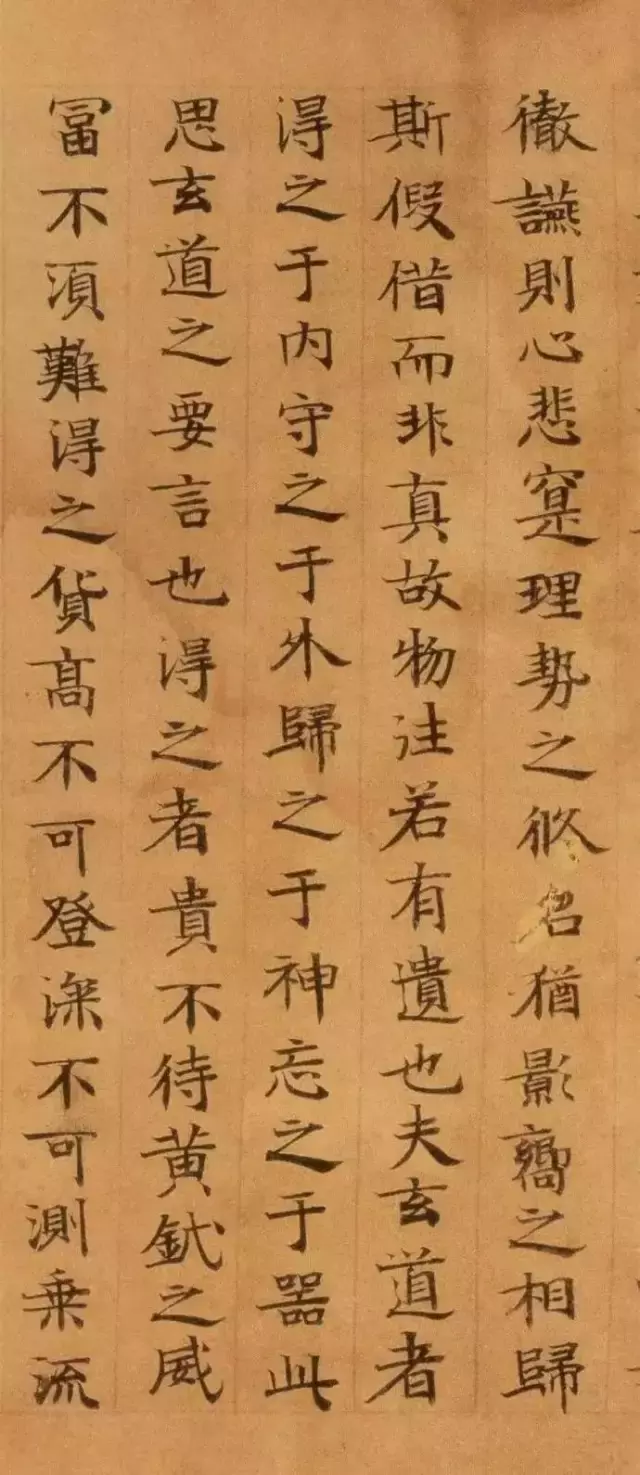 徹讌則心悲寔理勢之攸召猶影嚮之相歸
斯假借而非真故物往若有遺也夫玄道者
得之于内守之于外歸之于神忘之于器此
思玄道之要言也得之者貴不待黄鉞之威
冨不須難得之貨髙不可登深不可測乗流